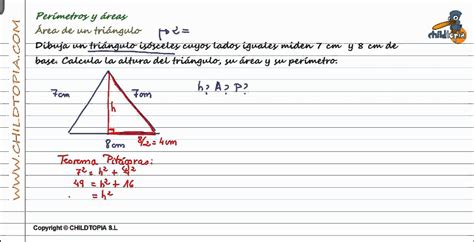 Perímetros y áreas
Área de un triángulo
Dibuja un triángulo isósceles cuyos lados iguales miden 7 cm y 8 cm de
base. Calcula la altura del triángulo, su área y su perímetro.
h? A? P?
7cm
7cm
h
8cm
8/2 = 4cm
Teorema Pitágoras:
7² = h² + 4²
49 = h² + 16
= h²
WWW.CHILDTOPIA.COM
childtopia
Copyright © CHILDTOPIA S.L